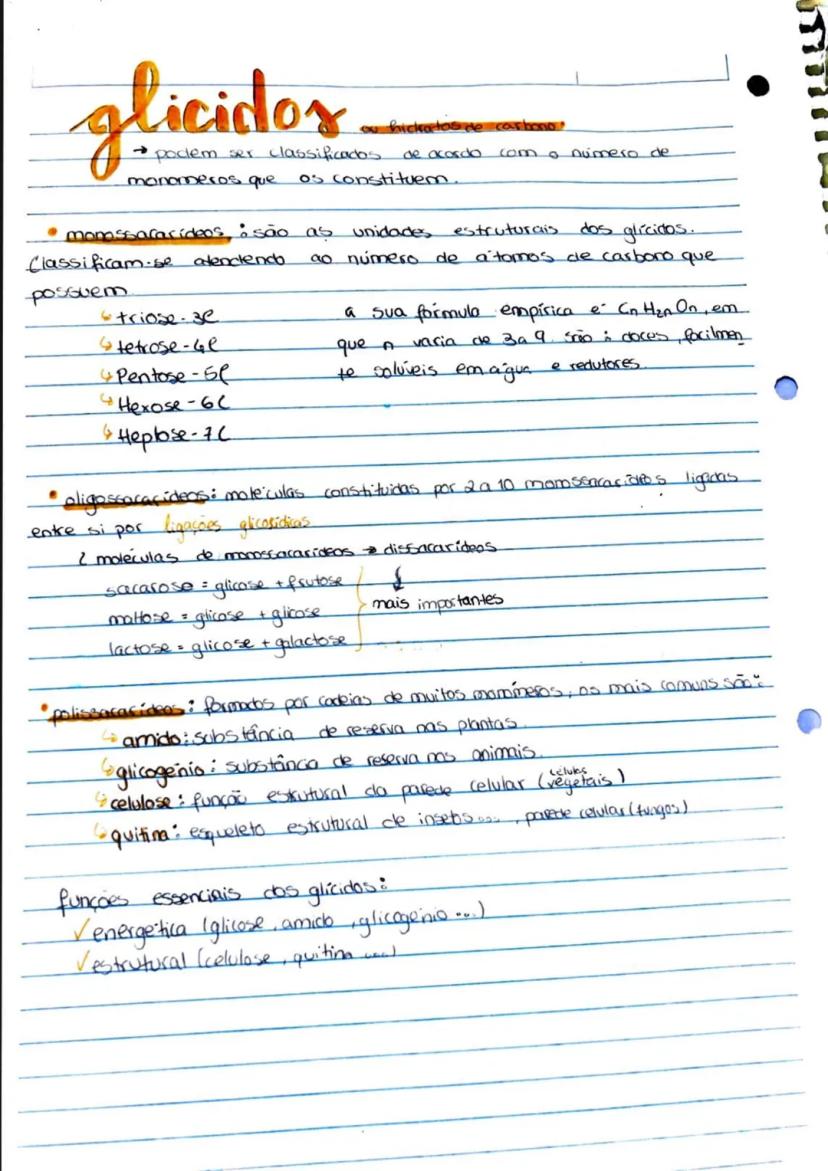 glicidos ou hidratos de carbono:
→ podem ser classificados de acordo com o número de
monómeros que os constituem.
• monossacarídeos: são as unidades estruturais dos glícidos.
Classificam-se atendendo ao número de átomos de carbono que
possuem
↳ triose - 3C
↳ tetrose - 4C
↳ Pentose - 5C
↳ Hexose - 6C
↳ Heptose - 7C
a sua fórmula empírica é CnH2nOn, em
que n varia de 3 a 9. são: doces, facilmen
te solúveis em água e redutores.
• oligossacarídeos: moléculas constituídas por 2 a 10 monossacarídeos ligadas
entre si por ligações glicosídicas
2 moléculas de monossacarídeos → dissacarídeos
↓
sacarose = glicose + frutose
maltose = glicose + glicose
lactose = glicose + galactose
mais importantes
• polissacarídeos: formados por cadeias de muitos monómeros, os mais comuns são:
↳ amido: substância de reserva nas plantas
↳ glicogénio: substância de reserva nos animais
↳ celulose: função estrutural da parede celular (células vegetais)
↳ quitina: esqueleto estrutural de insetos..., parede celular (fungos)
funções essenciais dos glícidos:
✓ energética (glicose, amido, glicogénio ...)
✓ estrutural (celulose, quitina ...)